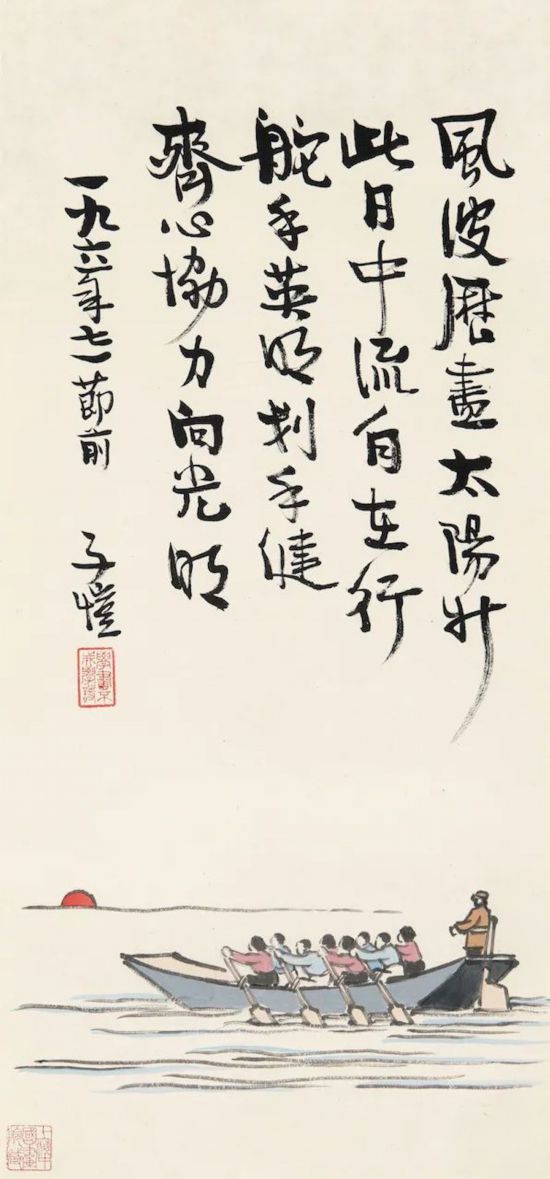 風波歷盡太陽升
此日中流自在行
舵手英明划手健
齊心協力向光明
一九六一年七一節前 子愷